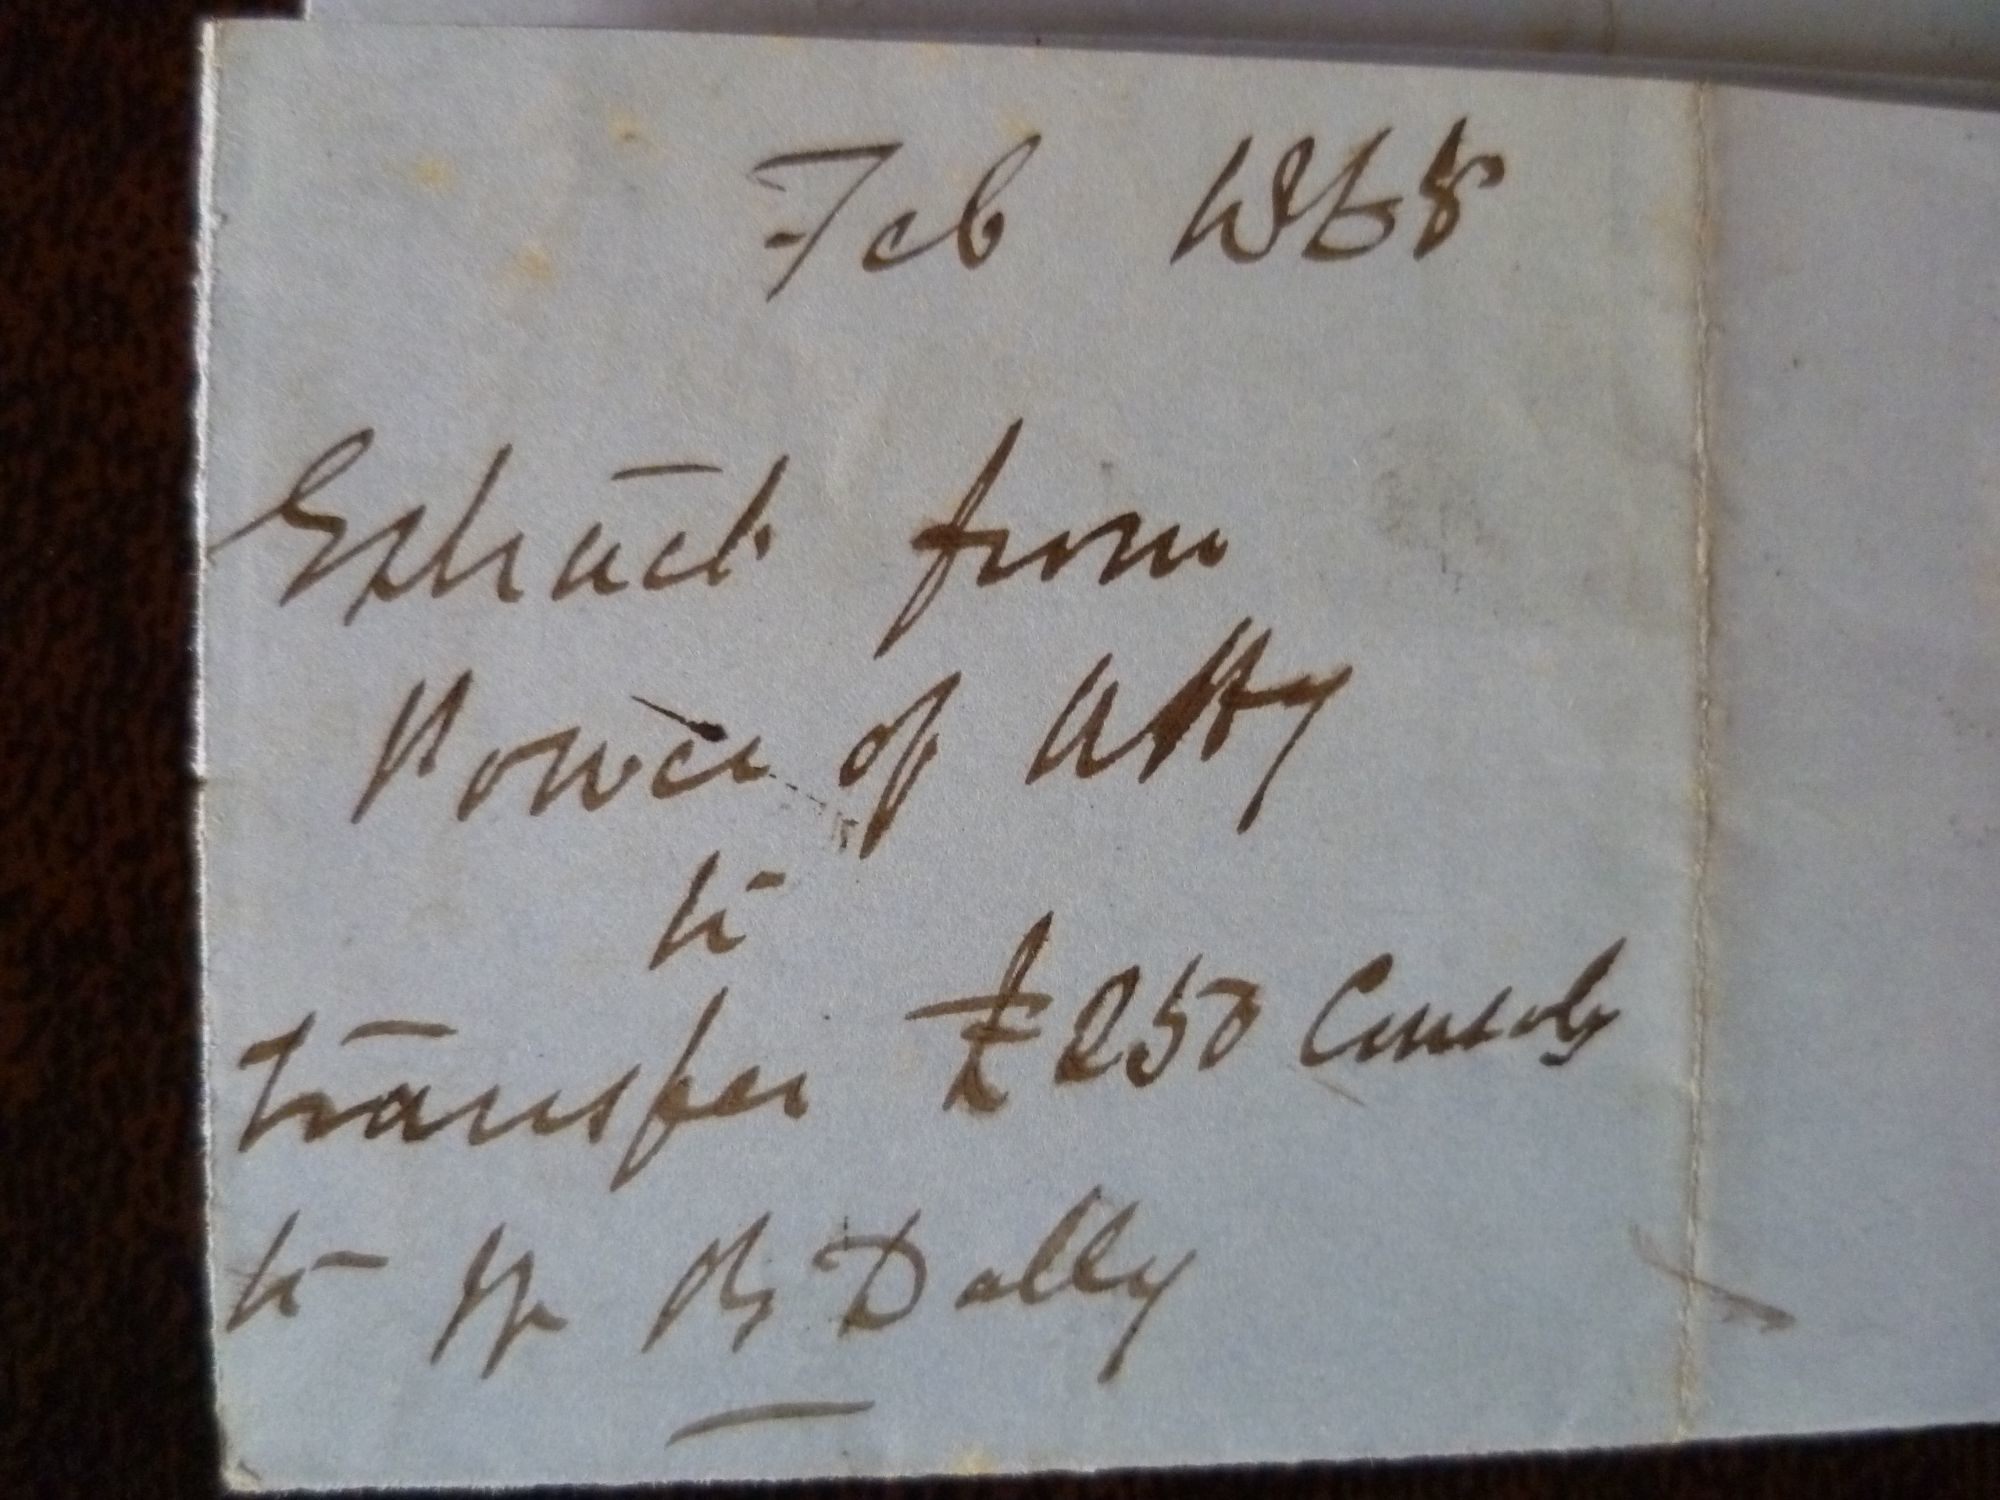 Feb 1868
Extract from
Power of Atty
to
transfer £250 Consols
to Mr Dolly